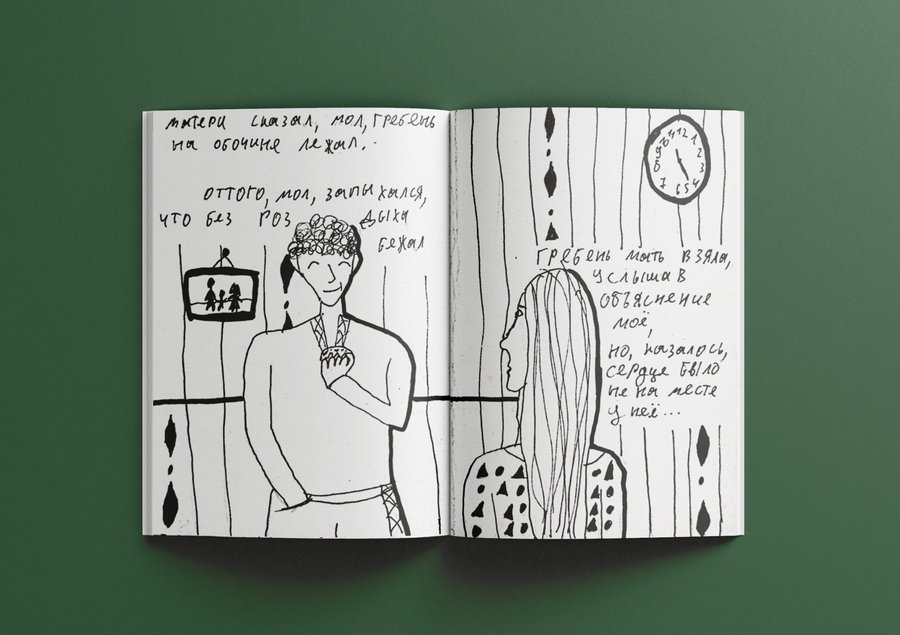 матери сказал, мол, гребень
на обочине лежал..
оттого, мол, запыхался,
что без роз дыха
бежал
12 1 2 3 4 5 6 7
гребень мать взяла,
услышав
объяснение
моё,
но, казалось,
сердце было
не на месте
у неё...